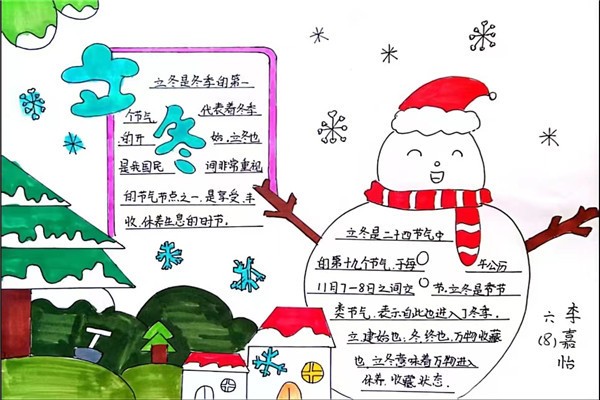 立冬
立冬是冬季的第一
个节气 代表着冬季
的开 始,立冬也
是我国民 间非常重视
的节气节点之一,是享受丰
收、休养生息的时节。
立冬是二十四节气中
的第十九个节气,于每 年公历
11月7-8日之间交 节,立冬是季节
类节气,表示自此也进入了冬季。
立,建始也;冬,终也,万物收藏
也,立冬意味着万物进入
休养、收藏状态.
六(8) 李嘉怡